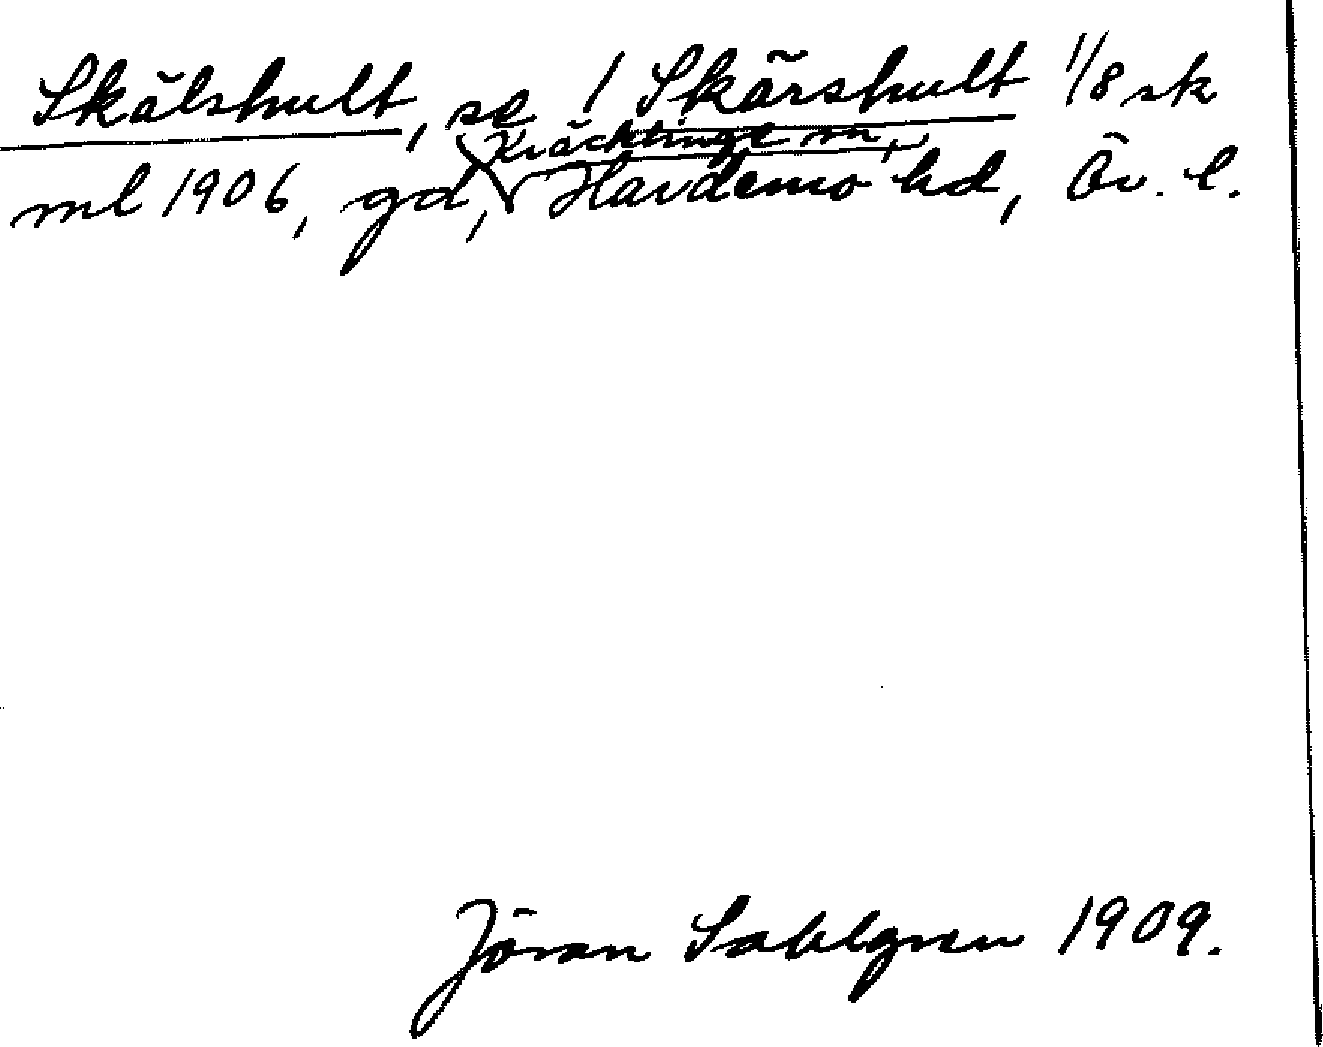 Skälshult, se ! Skärshult 1/8 sk
Kräcklinge sn,
ml 1906, gd, Hardemo hd, Ör. l.
Jöran Sahlgren 1909.